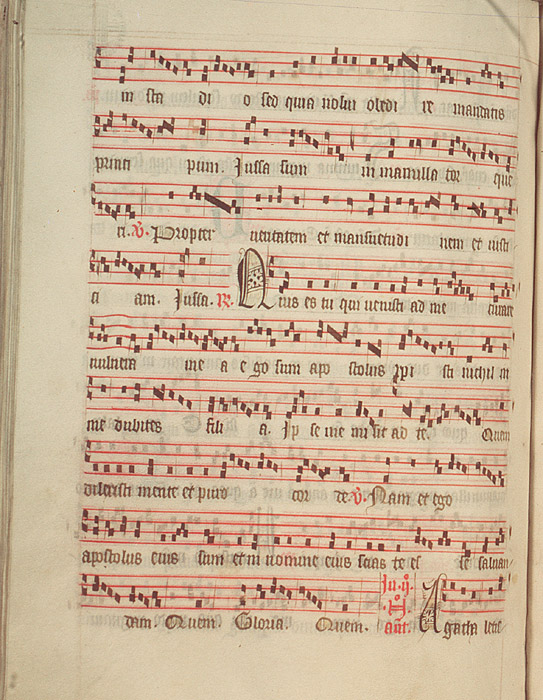 in sta di o sed quia nolui obedi re mandatis
princi pum. Jussa sum in mamilla tor que
ri. ℣. Propter veritatem et mansuetudi nem et iusti
ci am. Jussa. ℟. Quis es tu qui venisti ad me curare
vulnera me a e go sum apo stolus xpi sti nichil in
me dubites fili a. Ip se me misit ad te. Quem
dilexisti mente et puro cor de. ℣. Nam et ego
apostolus eius sum et in nomine eius scias te es se saluan
dam. Quem. Gloria. Quem. In ij. aña. Agatha leti